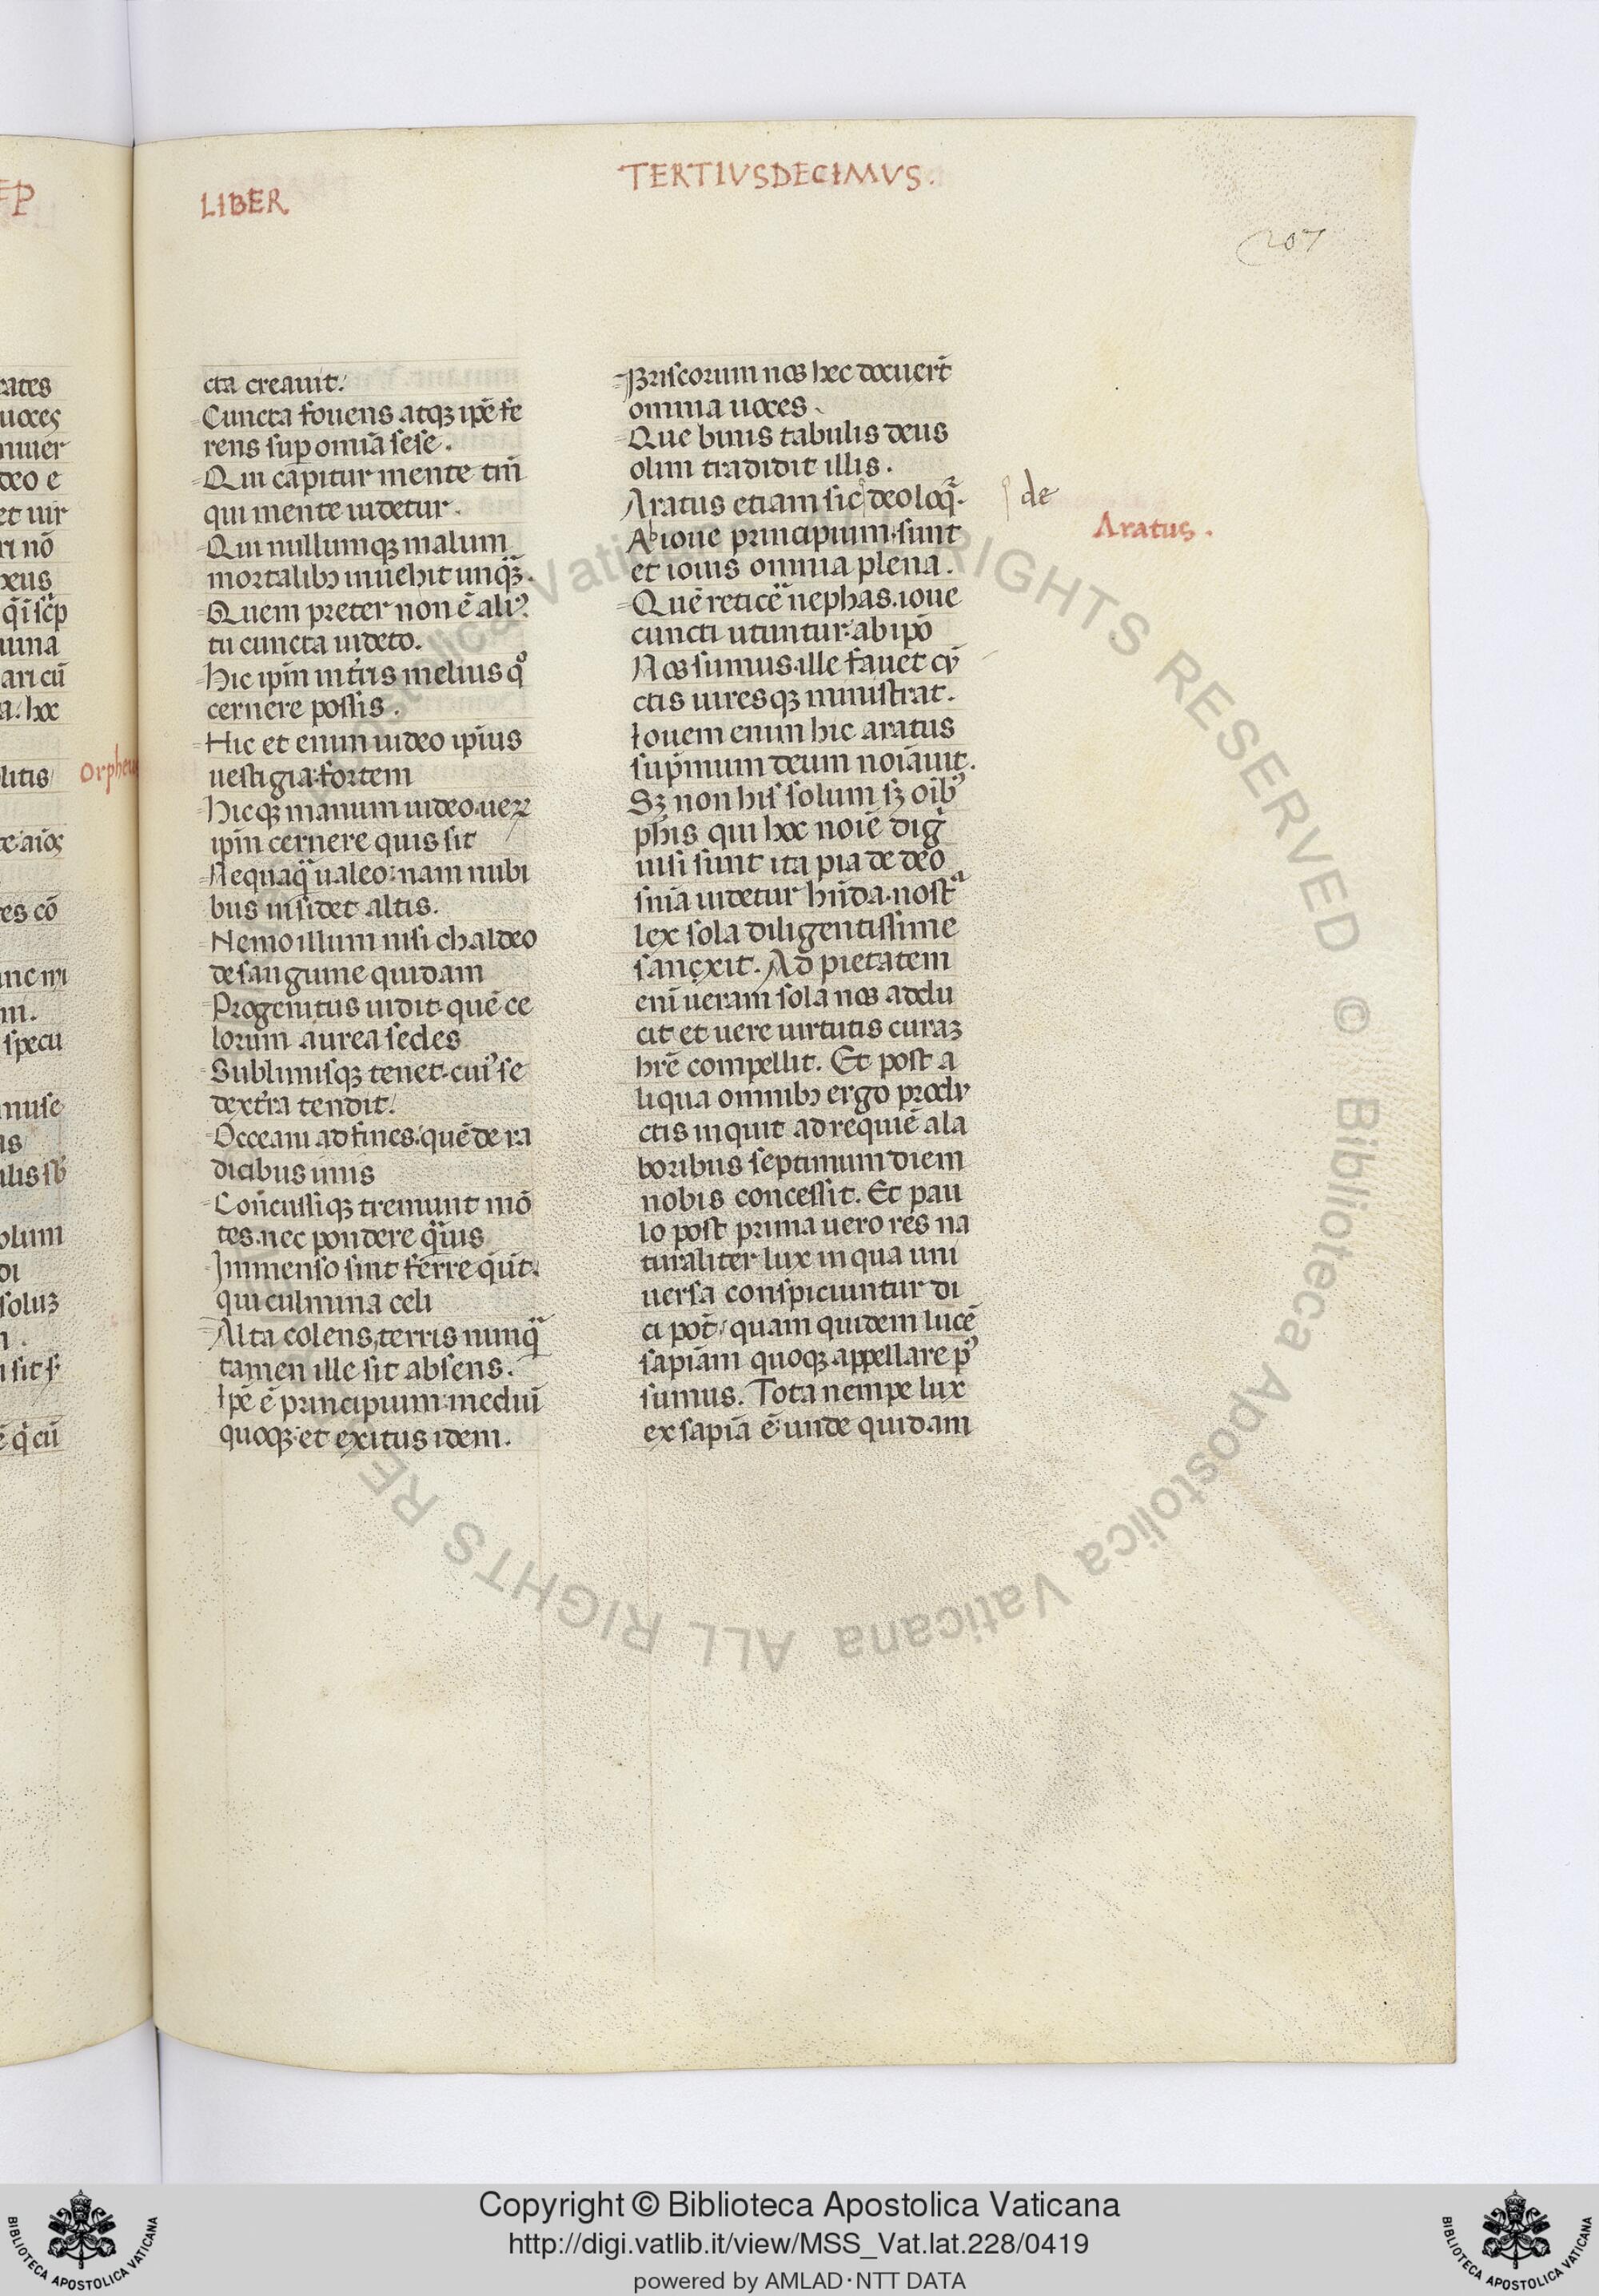 LIBER
TERTIVSDECIMVS.
207
cta creauit.
Cuncta fouens atqꝫ ip̄e fe
rens sup omīa sese.
Qui capitur mente tm̄
qui mente uidetur.
Qui nullumqꝫ malum
mortalibꝫ inuehit unqꝫ.
Quem preter non ē aliꝰ
tu cuncta uideto.
Hic ip̄m int̄ris melius qͦ
cernere possis.
Hic et enim uideo ipīus
uestigia fortem
Hicqꝫ manum uideo ueꝝ
ip̄m cernere quis sit
Nequaqᷓ ualeo: nam nubi
bus insidet altis.
Nemo illum nisi chaldeo
de sanguine quidam
Progenitus uidit quē ce
lorum aurea sedes
Sublimisqꝫ tenet. cuiꝰ se
dextra tendit.
Occeani ad fines. quē de ra
dicibus imis
Concussiqꝫ tremunt mō
tes. nec pondere qᷓuis
Immenso sint ferre qͥut.
qui culmina celi
Alta colens, terris nunqᷓ
tamen ille sit absens.
Ip̄e ē principium: mediū
quoqꝫ et exitus idem.
Priscorum nos hec docuer̄t
omnia uoces.
Que binis tabulis deus
olim tradidit illis.
Aratus etiam sic deo loqͬ.
de
Aratus.
Ab ioue principium. sunt
et iouis omnia plena.
Quē reticē nephas. ioue
cuncti utuntur: ab ip̄o
Nos sumus. ille fauet cū
ctis uiresqꝫ ministrat.
Iouem enim hic aratus
sup̄mum deum noīauit.
Sꝫ non his solum sꝫ oībꝰ
ph̄is qui hoc noīe digͥ
uisi sunt ita pia de deo
sn̄ia uidetur hn̄da. nostᷓ
lex sola diligentissime
sanc̨xit. Ad pietatem
enī ueram sola nos addu
cit et uere uirtutis curaꝫ
hr̄e compellit. Et post a
liqua omnibꝫ ergo produ
ctis inquit ad requiē a la
boribus septimum diem
nobis concessit. Et pau
lo post prima uero res na
turaliter lux in qua uni
uersa conspiciuntur di
ci pot̄, quam quidem lucē
sapīam quoqꝫ appellare pꝰ
sumus. Tota nempe lux
ex sapīa ē unde quidam
Orpheu
Copyright © Biblioteca Apostolica Vaticana
http://digi.vatlib.it/view/MSS_Vat.lat.228/0419
powered by AMLAD·NTT DATA